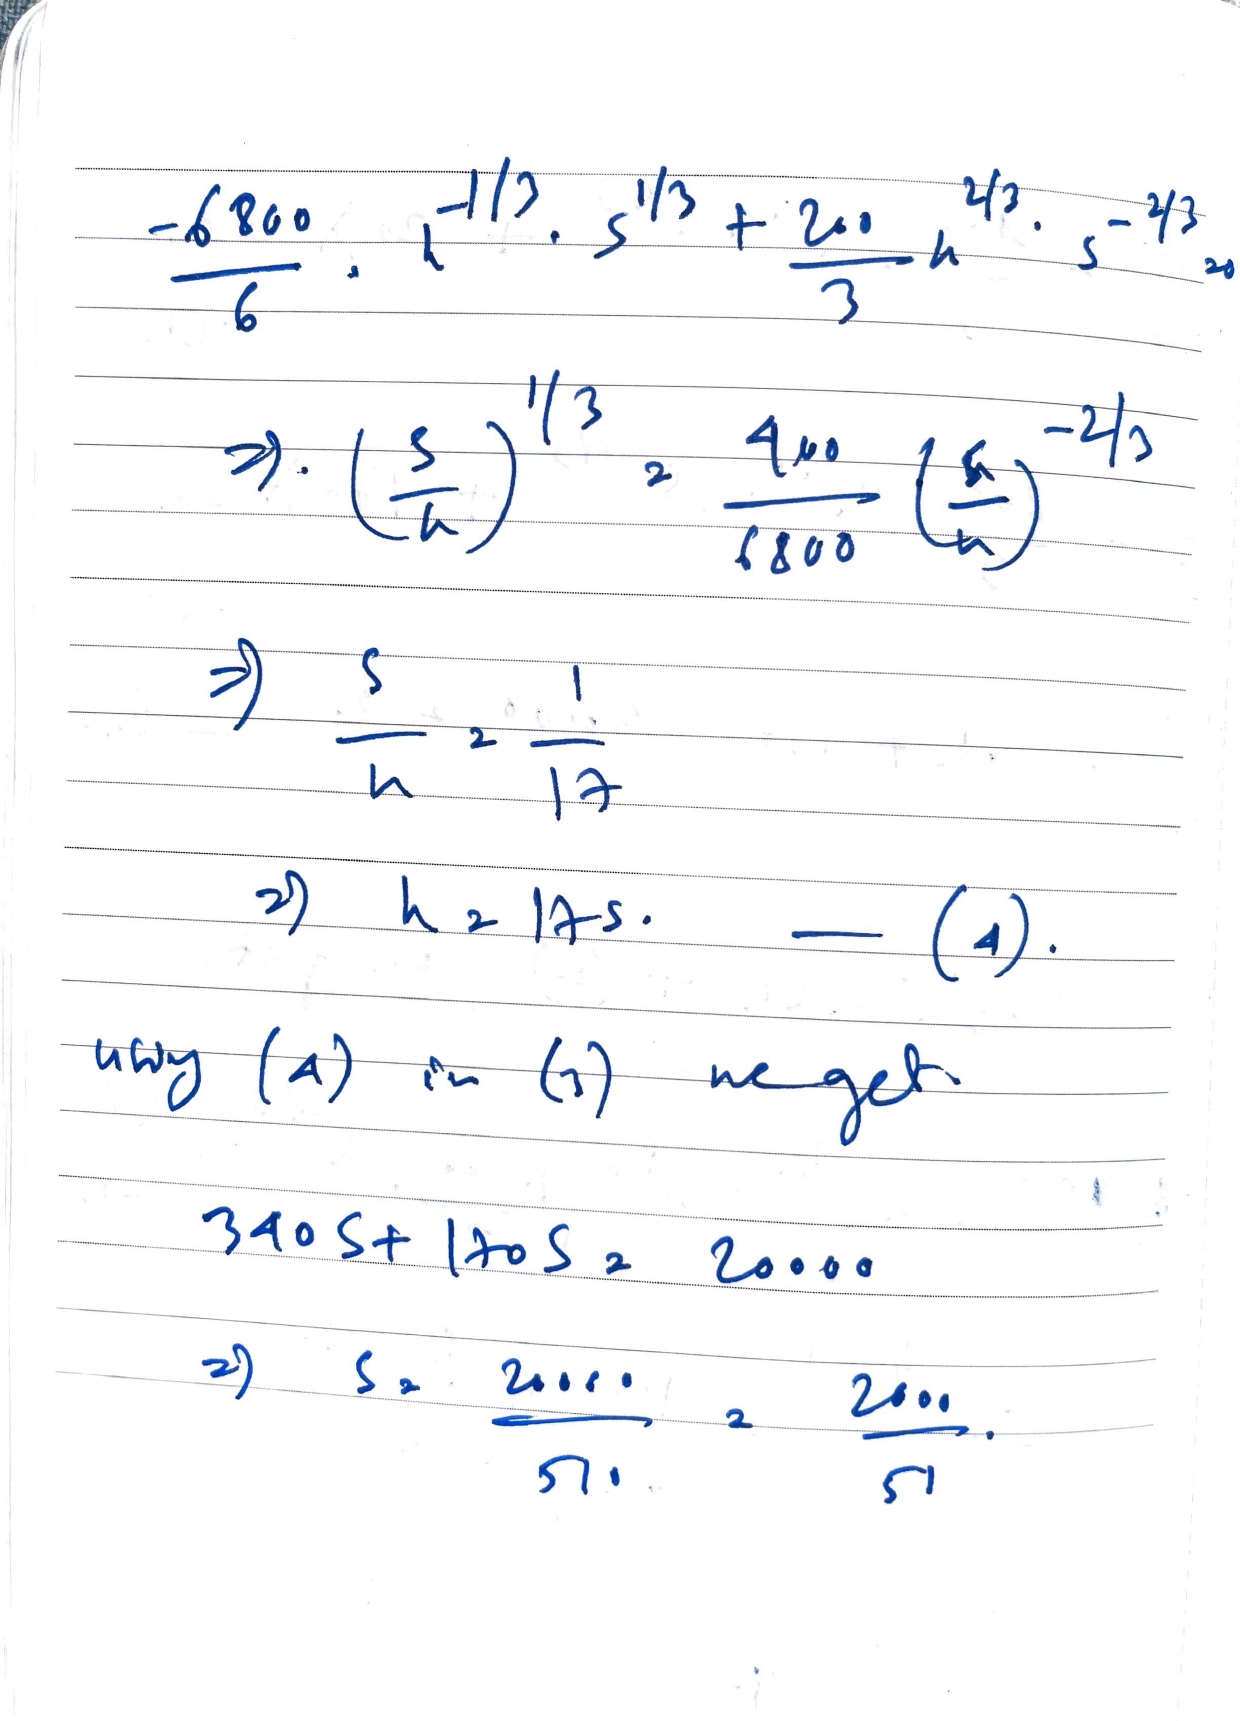 -6800/6 . h^-1/3 . s^1/3 + 200/3 h^2/3 . s^-2/3 = 0
⇒ . (s/h)^1/3 = 400/6800 (s/h)^-2/3
⇒ s/h = 1/17
⇒ h = 17s. — (4).
using (4) in (3) we get.
340S + 170S = 20000
⇒ S = 20000/510 = 2000/51.